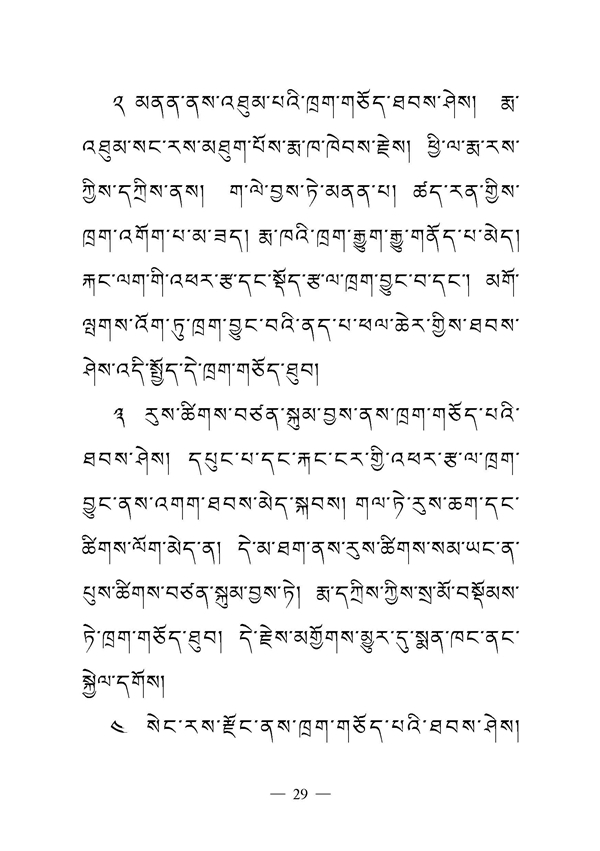 ༢ མནན་ནས་འཐུམ་པའི་ཁྲག་གཅོད་ཐབས་ཤེས། རྨ་
འཐུམ་སང་རས་མཐུག་པོས་རྨ་ཁ་ཁེབས་རྗེས། ཕྱི་ལ་རྨ་རས་
ཀྱིས་དཀྲིས་ནས། ག་ལེ་བྱས་ཏེ་མནན་པ། ཚད་རན་གྱིས་
ཁྲག་འགོག་པ་མ་ཟད། རྨ་ཁའི་ཁྲག་རྒྱུག་རྒྱུ་གནོད་པ་མེད།
རྐང་ལག་གི་འཕར་རྩ་དང་སྡོད་རྩ་ལ་ཁྲག་བྱུང་བ་དང་། མགོ་
ལྤགས་འོག་ཏུ་ཁྲག་བྱུང་བའི་ནད་པ་ཕལ་ཆེར་གྱིས་ཐབས་
ཤེས་འདི་སྤྱོད་དེ་ཁྲག་གཅོད་ཐུབ།
༣ རུས་ཚིགས་བཙན་སྐུམ་བྱས་ནས་ཁྲག་གཅོད་པའི་
ཐབས་ཤེས། དཔུང་པ་དང་རྐང་ངར་གྱི་འཕར་རྩ་ལ་ཁྲག་
བྱུང་ནས་འགག་ཐབས་མེད་སྐབས། གལ་ཏེ་རུས་ཆག་དང་
ཚིགས་ལོག་མེད་ན། དེ་མ་ཐག་ནས་རུས་ཚིགས་སམ་ཡང་ན་
པུས་ཚིགས་བཙན་སྐུམ་བྱས་ཏེ། རྨ་དཀྲིས་ཀྱིས་སྲ་མོ་བསྡོམས་
ཏེ་ཁྲག་གཅོད་ཐུབ། དེ་རྗེས་མགྱོགས་མྱུར་དུ་སྨན་ཁང་ནང་
སྐྱེལ་དགོས།
༤ སེང་རས་རྫོང་ནས་ཁྲག་གཅོད་པའི་ཐབས་ཤེས།
— 29 —